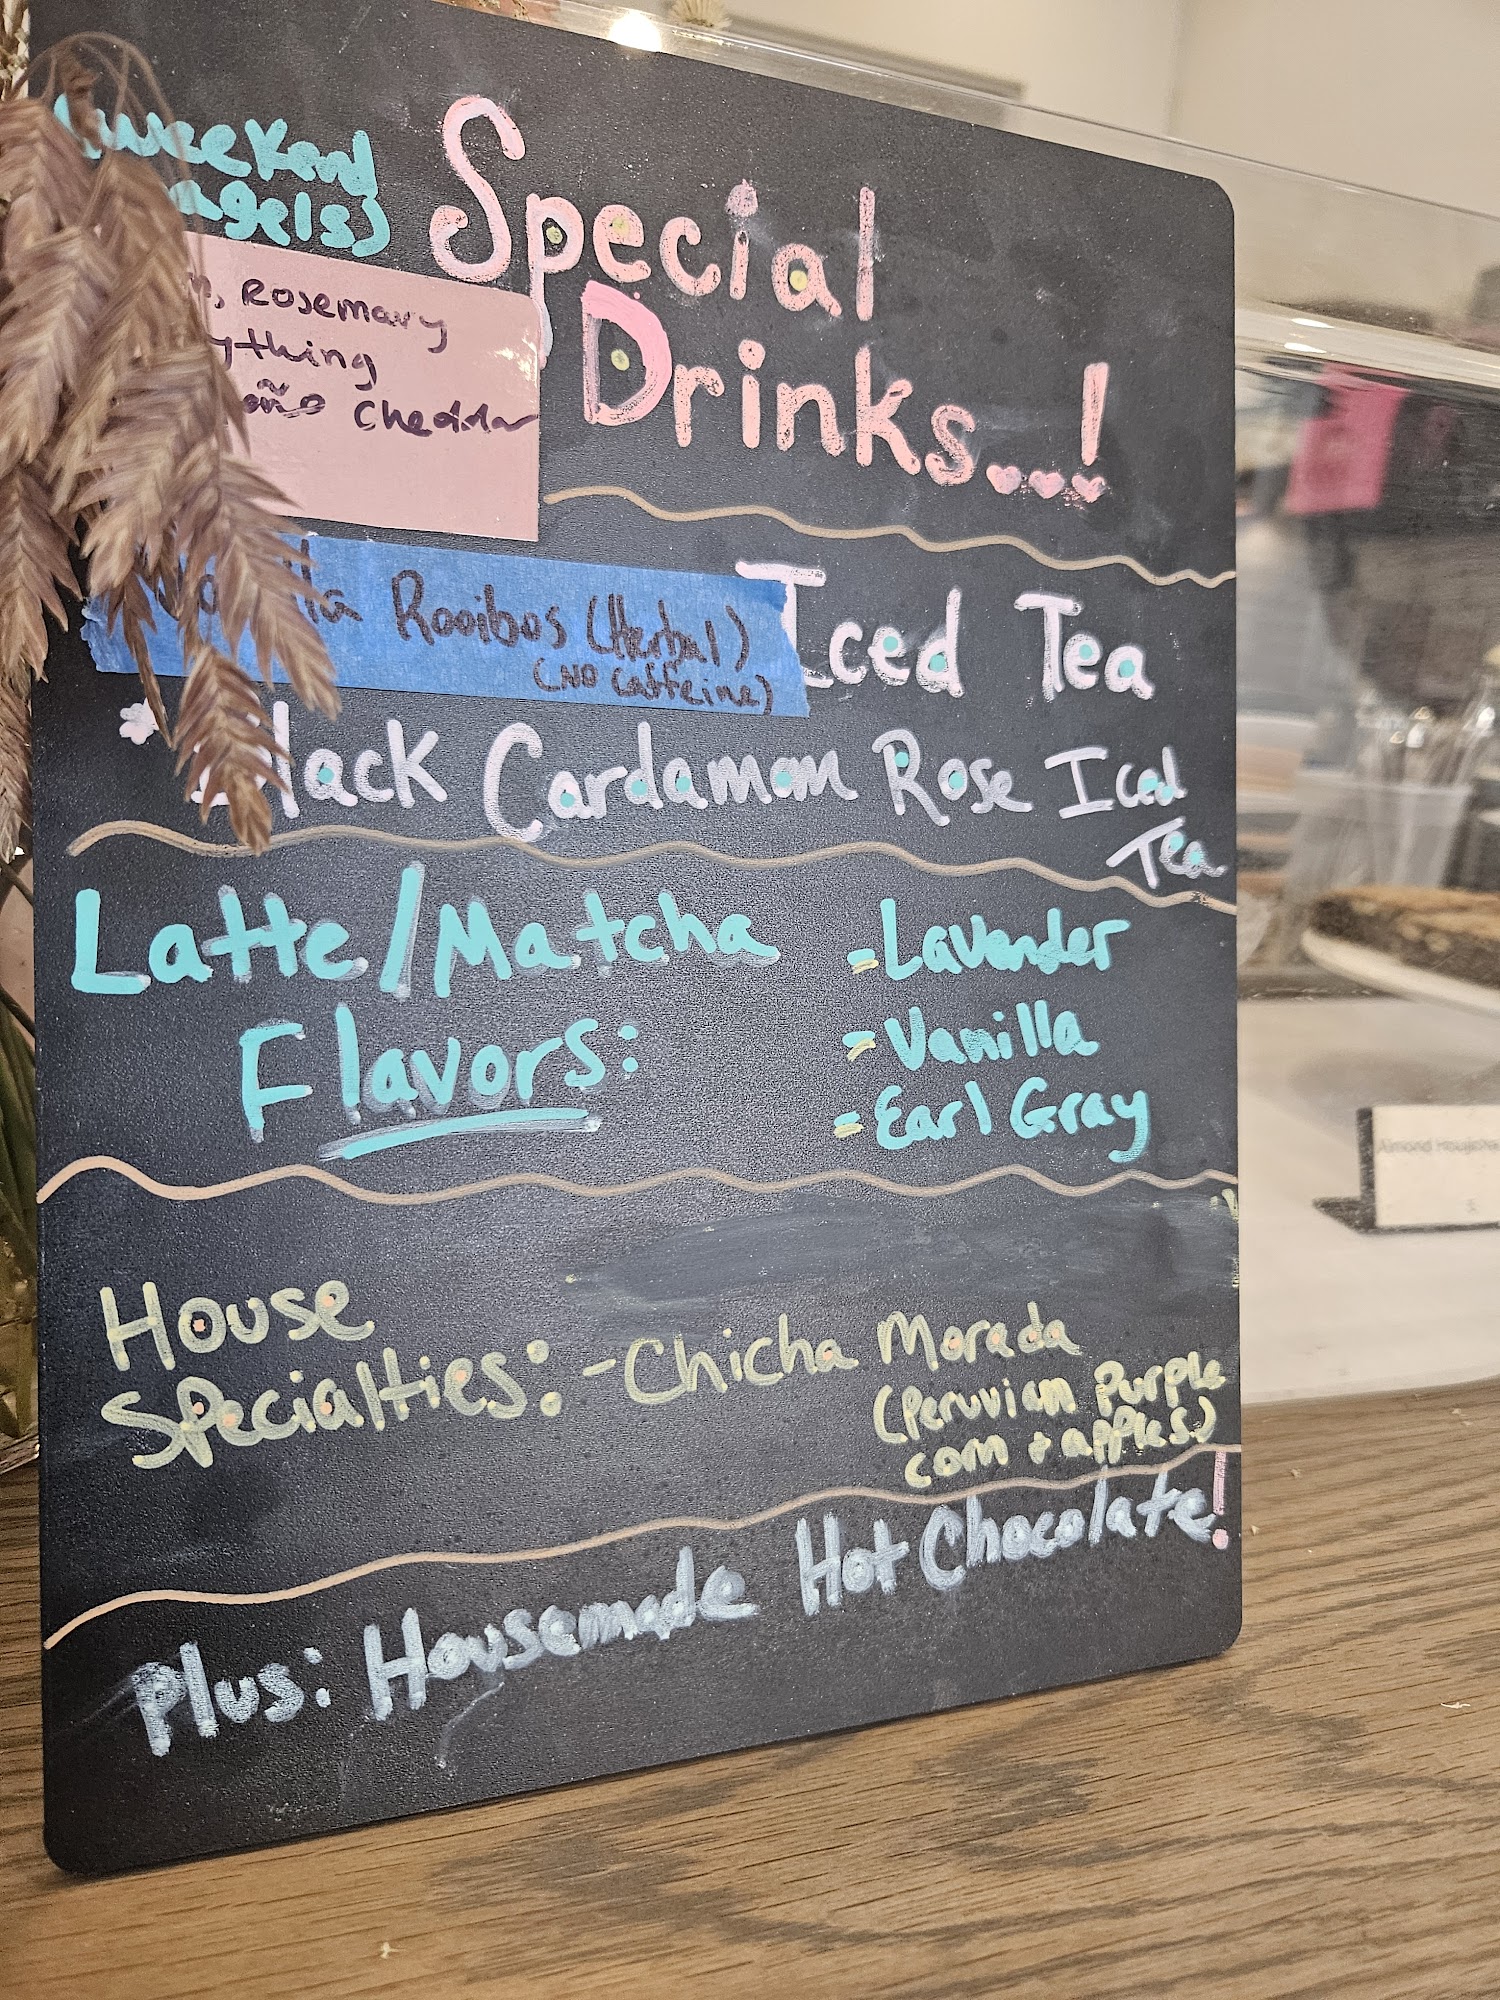 (weekend
Special
Rosemary
Cheddar
Drinks...!
Rooibos (Herbal)
(NO Caffeine)
Iced Tea
*Black Cardamom Rose Iced
Tea
Latte/Matcha
Flavors:
-Lavender
-Vanilla
-Earl Gray
House
Specialties: -Chicha Morada
(Peruvian Purple
corn + apples)
Plus: Housemade Hot Chocolate!